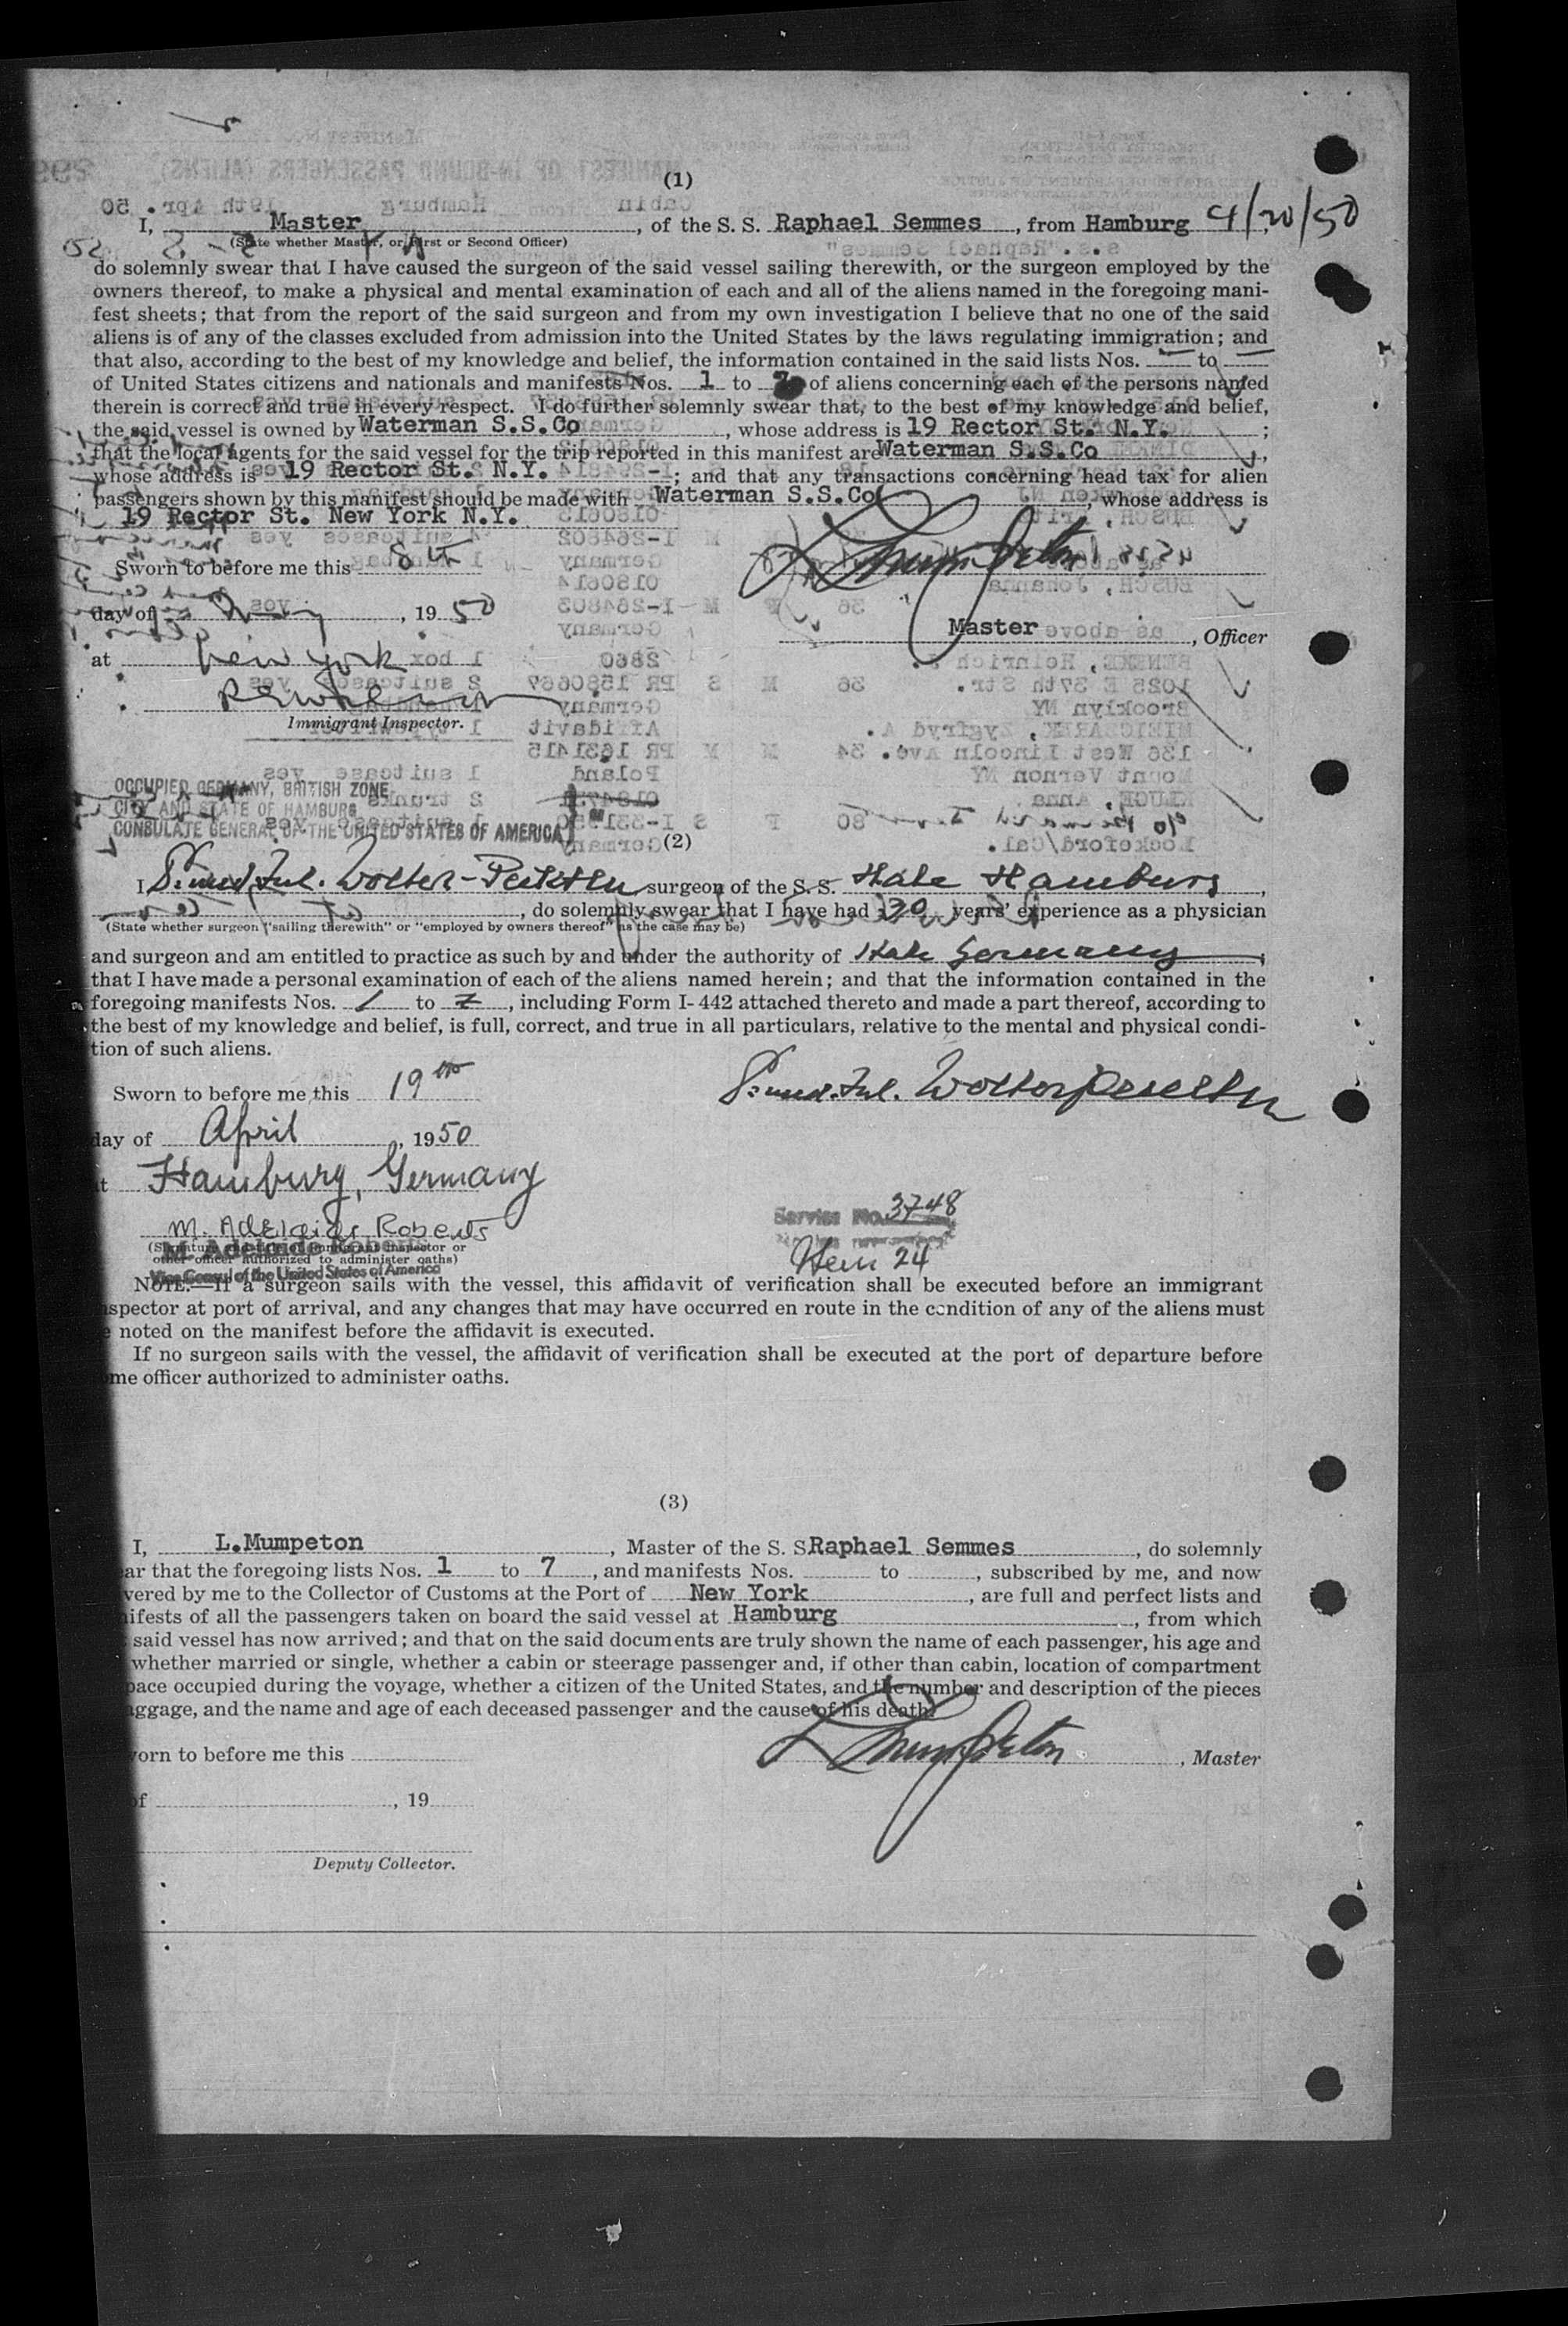 (1)
I, Master, of the S. S. Raphael Semmes, from Hamburg 4/20/50,
(State whether Master, or First or Second Officer)
do solemnly swear that I have caused the surgeon of the said vessel sailing therewith, or the surgeon employed by the
owners thereof, to make a physical and mental examination of each and all of the aliens named in the foregoing mani-
fest sheets; that from the report of the said surgeon and from my own investigation I believe that no one of the said
aliens is of any of the classes excluded from admission into the United States by the laws regulating immigration; and
that also, according to the best of my knowledge and belief, the information contained in the said lists Nos. — to —
of United States citizens and nationals and manifests Nos. 1 to 7 of aliens concerning each of the persons named
therein is correct and true in every respect. I do further solemnly swear that, to the best of my knowledge and belief,
the said vessel is owned by Waterman S.S.Co, whose address is 19 Rector St. N.Y.;
that the local agents for the said vessel for the trip reported in this manifest are Waterman S.S.Co,
whose address is 19 Rector St. N.Y.; and that any transactions concerning head tax for alien
passengers shown by this manifest should be made with Waterman S.S.Co, whose address is
19 Rector St. New York N.Y.
Sworn to before me this 8th
day of May, 19 50
Master, Officer
at New York
Immigrant Inspector.
OCCUPIED GERMANY, BRITISH ZONE
CITY AND STATE OF HAMBURG
CONSULATE GENERAL OF THE UNITED STATES OF AMERICA
(2)
I Wolter- surgeon of the S. S. Hamburg,
, do solemnly swear that I have had 30 years' experience as a physician
(State whether surgeon "sailing therewith" or "employed by owners thereof" as the case may be)
and surgeon and am entitled to practice as such by and under the authority of Germany,
that I have made a personal examination of each of the aliens named herein; and that the information contained in the
foregoing manifests Nos. 1 to 7, including Form I-442 attached thereto and made a part thereof, according to
the best of my knowledge and belief, is full, correct, and true in all particulars, relative to the mental and physical condi-
tion of such aliens.
Sworn to before me this 19th
day of April, 1950
t Hamburg, Germany
M. Adelaide Roberts
Service No. 3748
(Signature of immigrant inspector or
M. Adelaide Roberts
other officer authorized to administer oaths)
Item 24
Vice Consul of the United States of America
NOTE.—If a surgeon sails with the vessel, this affidavit of verification shall be executed before an immigrant
spector at port of arrival, and any changes that may have occurred en route in the condition of any of the aliens must
e noted on the manifest before the affidavit is executed.
If no surgeon sails with the vessel, the affidavit of verification shall be executed at the port of departure before
me officer authorized to administer oaths.
(3)
I, L.Mumpeton, Master of the S. S. Raphael Semmes, do solemnly
ar that the foregoing lists Nos. 1 to 7, and manifests Nos. to , subscribed by me, and now
vered by me to the Collector of Customs at the Port of New York, are full and perfect lists and
ifests of all the passengers taken on board the said vessel at Hamburg, from which
said vessel has now arrived; and that on the said documents are truly shown the name of each passenger, his age and
whether married or single, whether a cabin or steerage passenger and, if other than cabin, location of compartment
pace occupied during the voyage, whether a citizen of the United States, and the number and description of the pieces
aggage, and the name and age of each deceased passenger and the cause of his death.
orn to before me this
L Mumpeton, Master
of , 19
Deputy Collector.